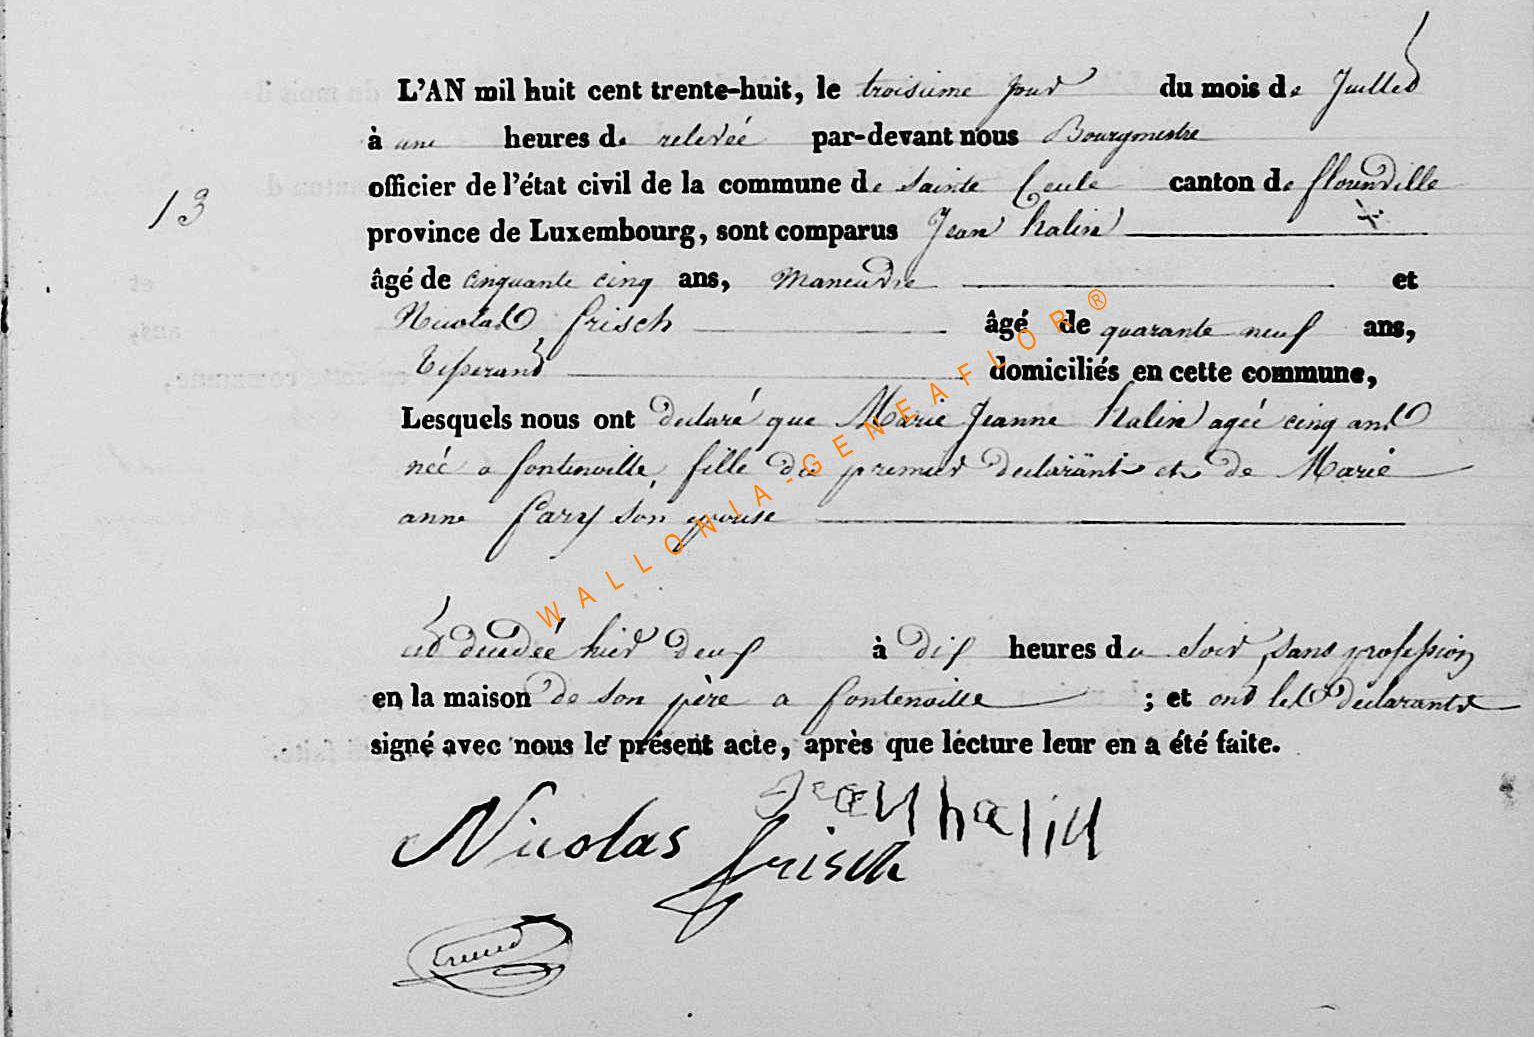 L'AN mil huit cent trente-huit, le troisieme jour du mois de Juillet
à une heures de relevée par-devant nous Bourgmestre
officier de l'état civil de la commune de sainte Cecile canton de florenville
13
province de Luxembourg, sont comparus Jean halin
âgé de cinquante cinq ans, Maneuvre et
Nicolas frisch âgé de quarante neuf ans,
Tisserand domiciliés en cette commune,
Lesquels nous ont declaré que Marie Jeanne halin agée cinq ans
née a fontenoille, fille du premier declarant et de Marie
anne fary son epouse
est decedée hier deux à dix heures du soir, sans profession
en la maison de son père a fontenoille ; et ont les declarants
signé avec nous le présent acte, après que lecture leur en a été faite.
Jean halin
Nicolas frisch
WALLONIA-GENEAFLOR®